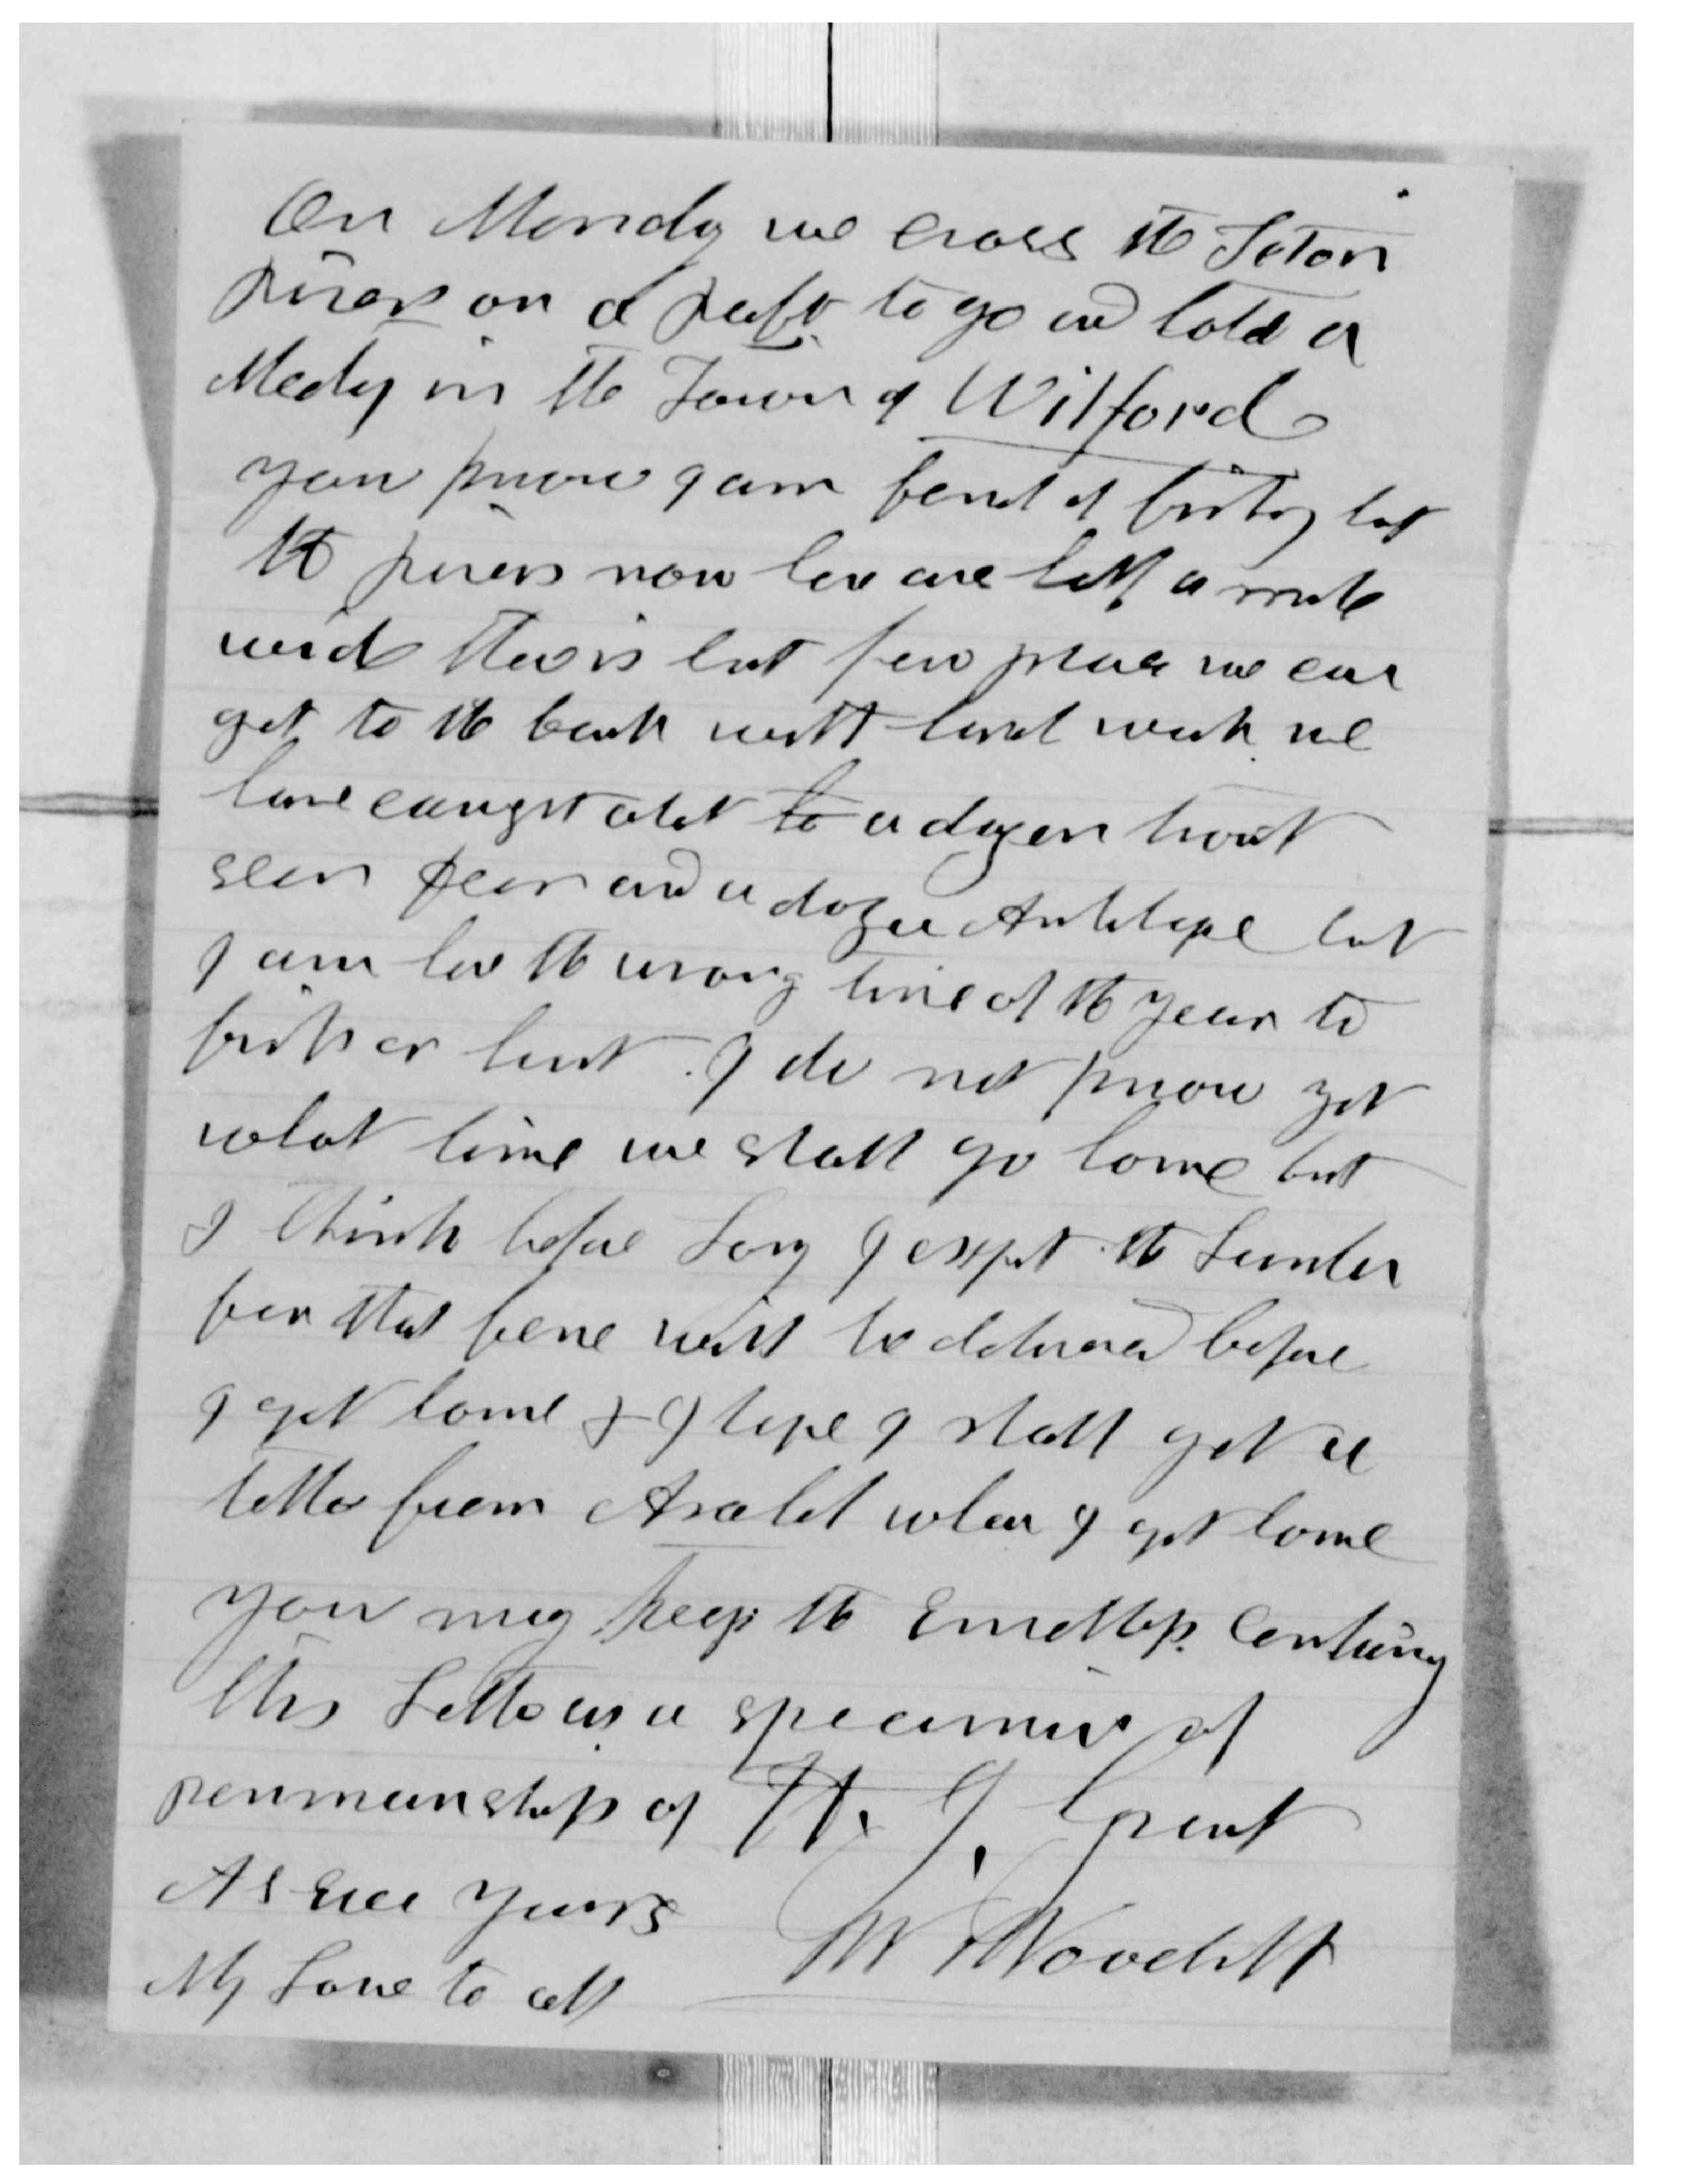 On Monday we cross the Teton
River on a Raft to go and hold a
Meeting in the Town of Wilford
you know I am fond of fishing but
the rivers now here are half a mile
wide there is but few places we can
get to the bank with hard work we
have caught about to a dozen trout
seen Deer and a dozen Antelope but
I am here the wrong time of the year to
fish or hunt. I do not know yet
what time we shall go home but
I think before Long I expect the Lumber
for that fence will be delivered before
I get home & I hope I shall get a
letter from Asahel when I get home
You may keep the Envellop. Containg
this Letter as a specimin of
penmanship of H. J. Grant
As Ever Yours
W Woodruff
My Love to all